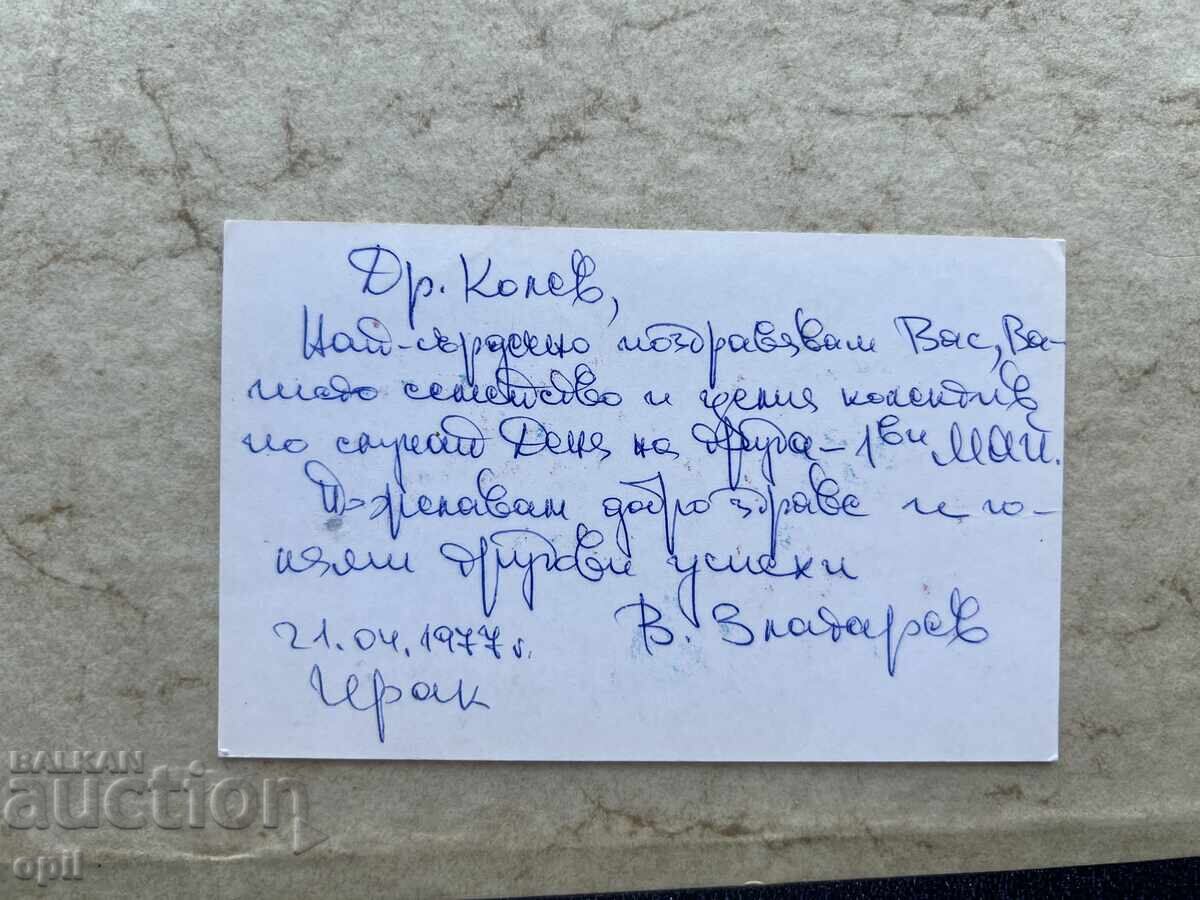 Др. Колев,
Най-сърдечно поздравявам Вас, Ва-
шето семейство и целия колектив
по случай Деня на труда - 1ви МАЙ.
Пожелавам добро здраве и го-
леми трудови успехи
В. Златарев
21.04.1977г.
Ирак
BALKAN
auction
opil